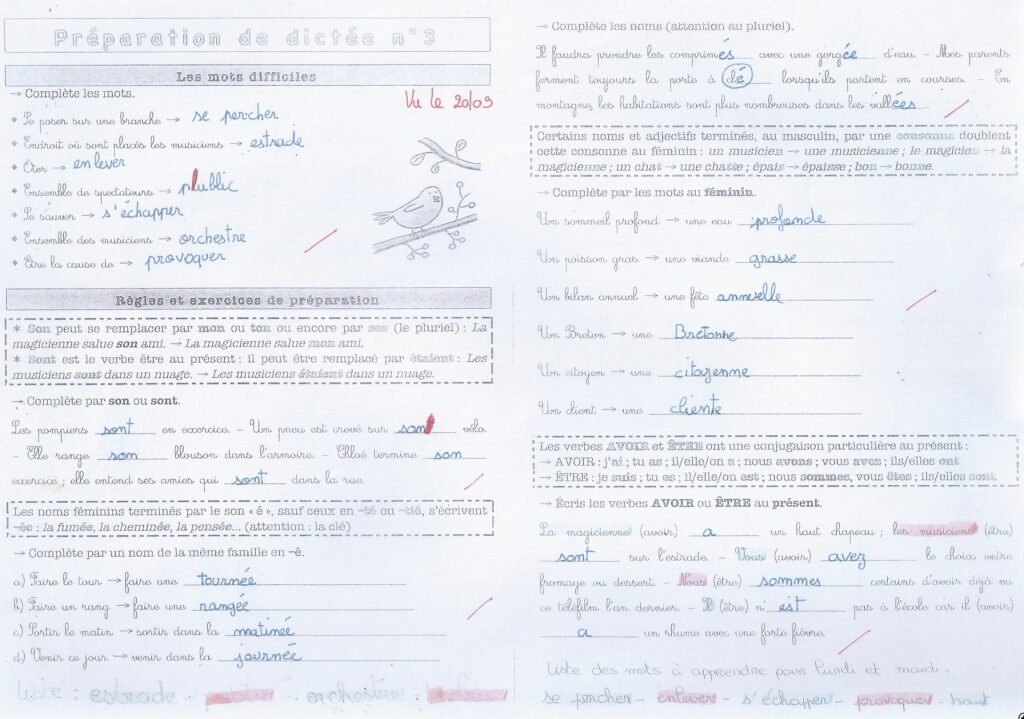 Préparation de dictée n°3
Les mots difficiles
→ Complète les mots.
Vu le 20/09
❖ Se poser sur une branche → se percher
❖ Endroit où sont placés les musiciens → estrade
❖ Ôter → enlever
❖ Ensemble de spectateurs → publlic
❖ Se sauver → s'échapper
❖ Ensemble des musiciens → orchestre
❖ Être la cause de → provoquer
Règles et exercices de préparation
* Son peut se remplacer par mon ou ton ou encore par ses (le pluriel) : La
magicienne salue son ami. → La magicienne salue mon ami.
* Sont est le verbe être au présent : il peut être remplacé par étaient : Les
musiciens sont dans un nuage. → Les musiciens étaient dans un nuage.
→ Complète par son ou sont.
Les pompiers sont en exercice. – Un pneu est crevé sur son vélo.
– Elle range son blouson dans l'armoire. – Chloé termine son
exercice ; elle entend ses amies qui sont dans la rue.
Les noms féminins terminés par le son « é », sauf ceux en –té ou –tié, s'écrivent
–ée : la fumée, la cheminée, la pensée... (attention : la clé)
→ Complète par un nom de la même famille en –ée.
a) Faire le tour → faire une tournée
b) Faire un rang → faire une rangée
c) Sortir le matin → sortir dans la matinée
d) Venir ce jour → venir dans la journée
liste : estrade - - orchestre :
→ Complète les noms (attention au pluriel).
Il faudra prendre les comprimés avec une gorgée d'eau. – Mes parents
ferment toujours la porte à clé lorsqu'ils partent en courses. – En
montagne, les habitations sont plus nombreuses dans les vallées.
Certains noms et adjectifs terminés, au masculin, par une consonne doublent
cette consonne au féminin : un musicien → une musicienne ; le magicien → la
magicienne ; un chat → une chatte ; épais → épaisse ; bon → bonne.
→ Complète par les mots au féminin.
Un sommeil profond → une eau profonde
Un poisson gras → une viande grasse
Un bilan annuel → une fête annuelle
Un Breton → une Bretonne
Un citoyen → une citoyenne
Un client → une cliente
Les verbes AVOIR et ÊTRE ont une conjugaison particulière au présent :
→ AVOIR : j'ai ; tu as ; il/elle/on a ; nous avons ; vous avez ; ils/elles ont
→ ÊTRE : je suis ; tu es ; il/elle/on est ; nous sommes, vous êtes ; ils/elles sont.
→ Écris les verbes AVOIR ou ÊTRE au présent.
La magicienne (avoir) a un haut chapeau ; les musiciens (être)
sont sur l'estrade. – Vous (avoir) avez le choix entre
fromage ou dessert. – Nous (être) sommes certains d'avoir déjà vu
ce téléfilm l'an dernier. – Il (être) n' est pas à l'école car il (avoir)
a un rhume avec une forte fièvre.
liste des mots à apprendre pour lundi et mardi.
se percher - enlever - s'échapper - provoquer - haut